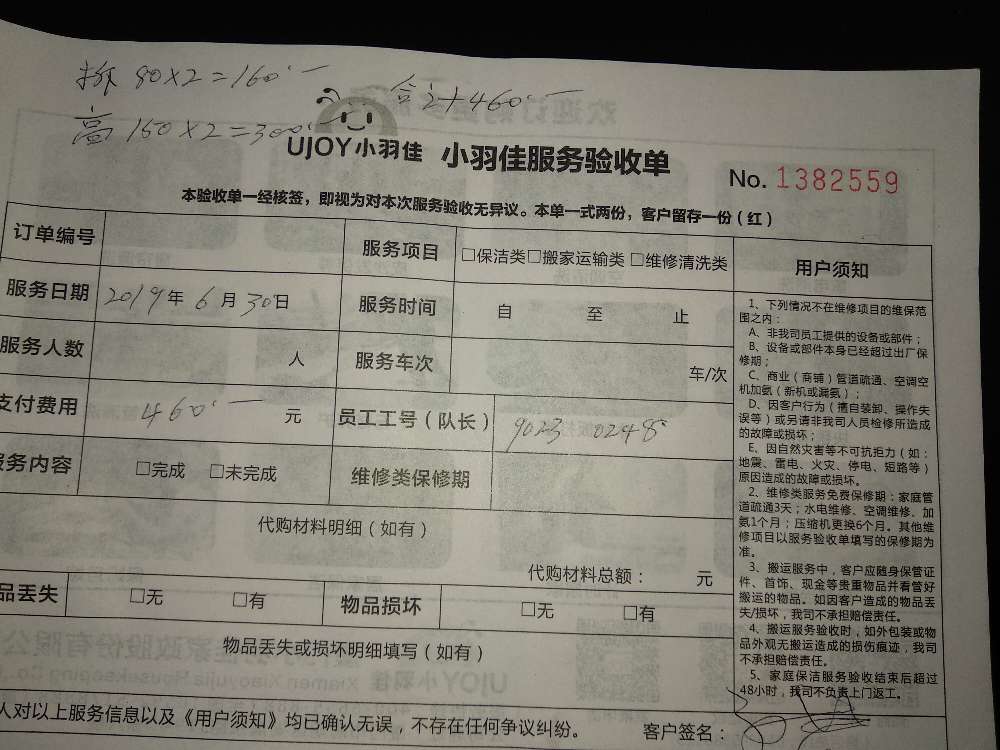 拆 80×2=160.一
合计460.一
高 150×2=300.
UJOY小羽佳 小羽佳服务验收单 No. 1382559
本验收单一经核签，即视为对本次服务验收无异议。本单一式两份，客户留存一份（红）
订单编号 服务项目 □保洁类□搬家运输类 □维修清洗类
服务日期 2019年 6月30日 服务时间 自 至 止
服务人数 人 服务车次 车/次
支付费用 460.一 元 员工工号（队长） 9023 0248
务内容 □完成 □未完成 维修类保修期
代购材料明细（如有）
代购材料总额： 元
品丢失 □无 □有 物品损坏 □无 □有
物品丢失或损坏明细填写（如有）
人对以上服务信息以及《用户须知》均已确认无误，不存在任何争议纠纷。 客户签名：
用户须知
1、下列情况不在维修项目的维保范
围之内：
A、非我司员工提供的设备或部件；
B、设备或部件本身已经超过出厂保
修期；
C、商业（商铺）管道疏通、空调空
机加氨（新机或漏氨）；
D、因客户行为（擅自装卸、操作失
误等）或另请非我司人员检修所造成
的故障或损坏；
E、因自然灾害等不可抗拒力（如：
地震、雷电、火灾、停电、短路等）
原因造成的故障或损坏。
2、维修类服务免费保修期：家庭管
道疏通3天；水电维修、空调维修、加
氨1个月；压缩机更换6个月。其他维
修项目以服务验收单填写的保修期为
准。
3、搬运服务中，客户应随身保管证
件、首饰、现金等贵重物品并看管好
搬运的物品。如因客户造成的物品丢
失/损坏，我司不承担赔偿责任。
4、搬运服务验收时，如外包装或物
品外观无搬运造成的损伤痕迹，我司
不承担赔偿责任。
5、家庭保洁服务验收结束后超过
48小时，我司不负责上门返工。